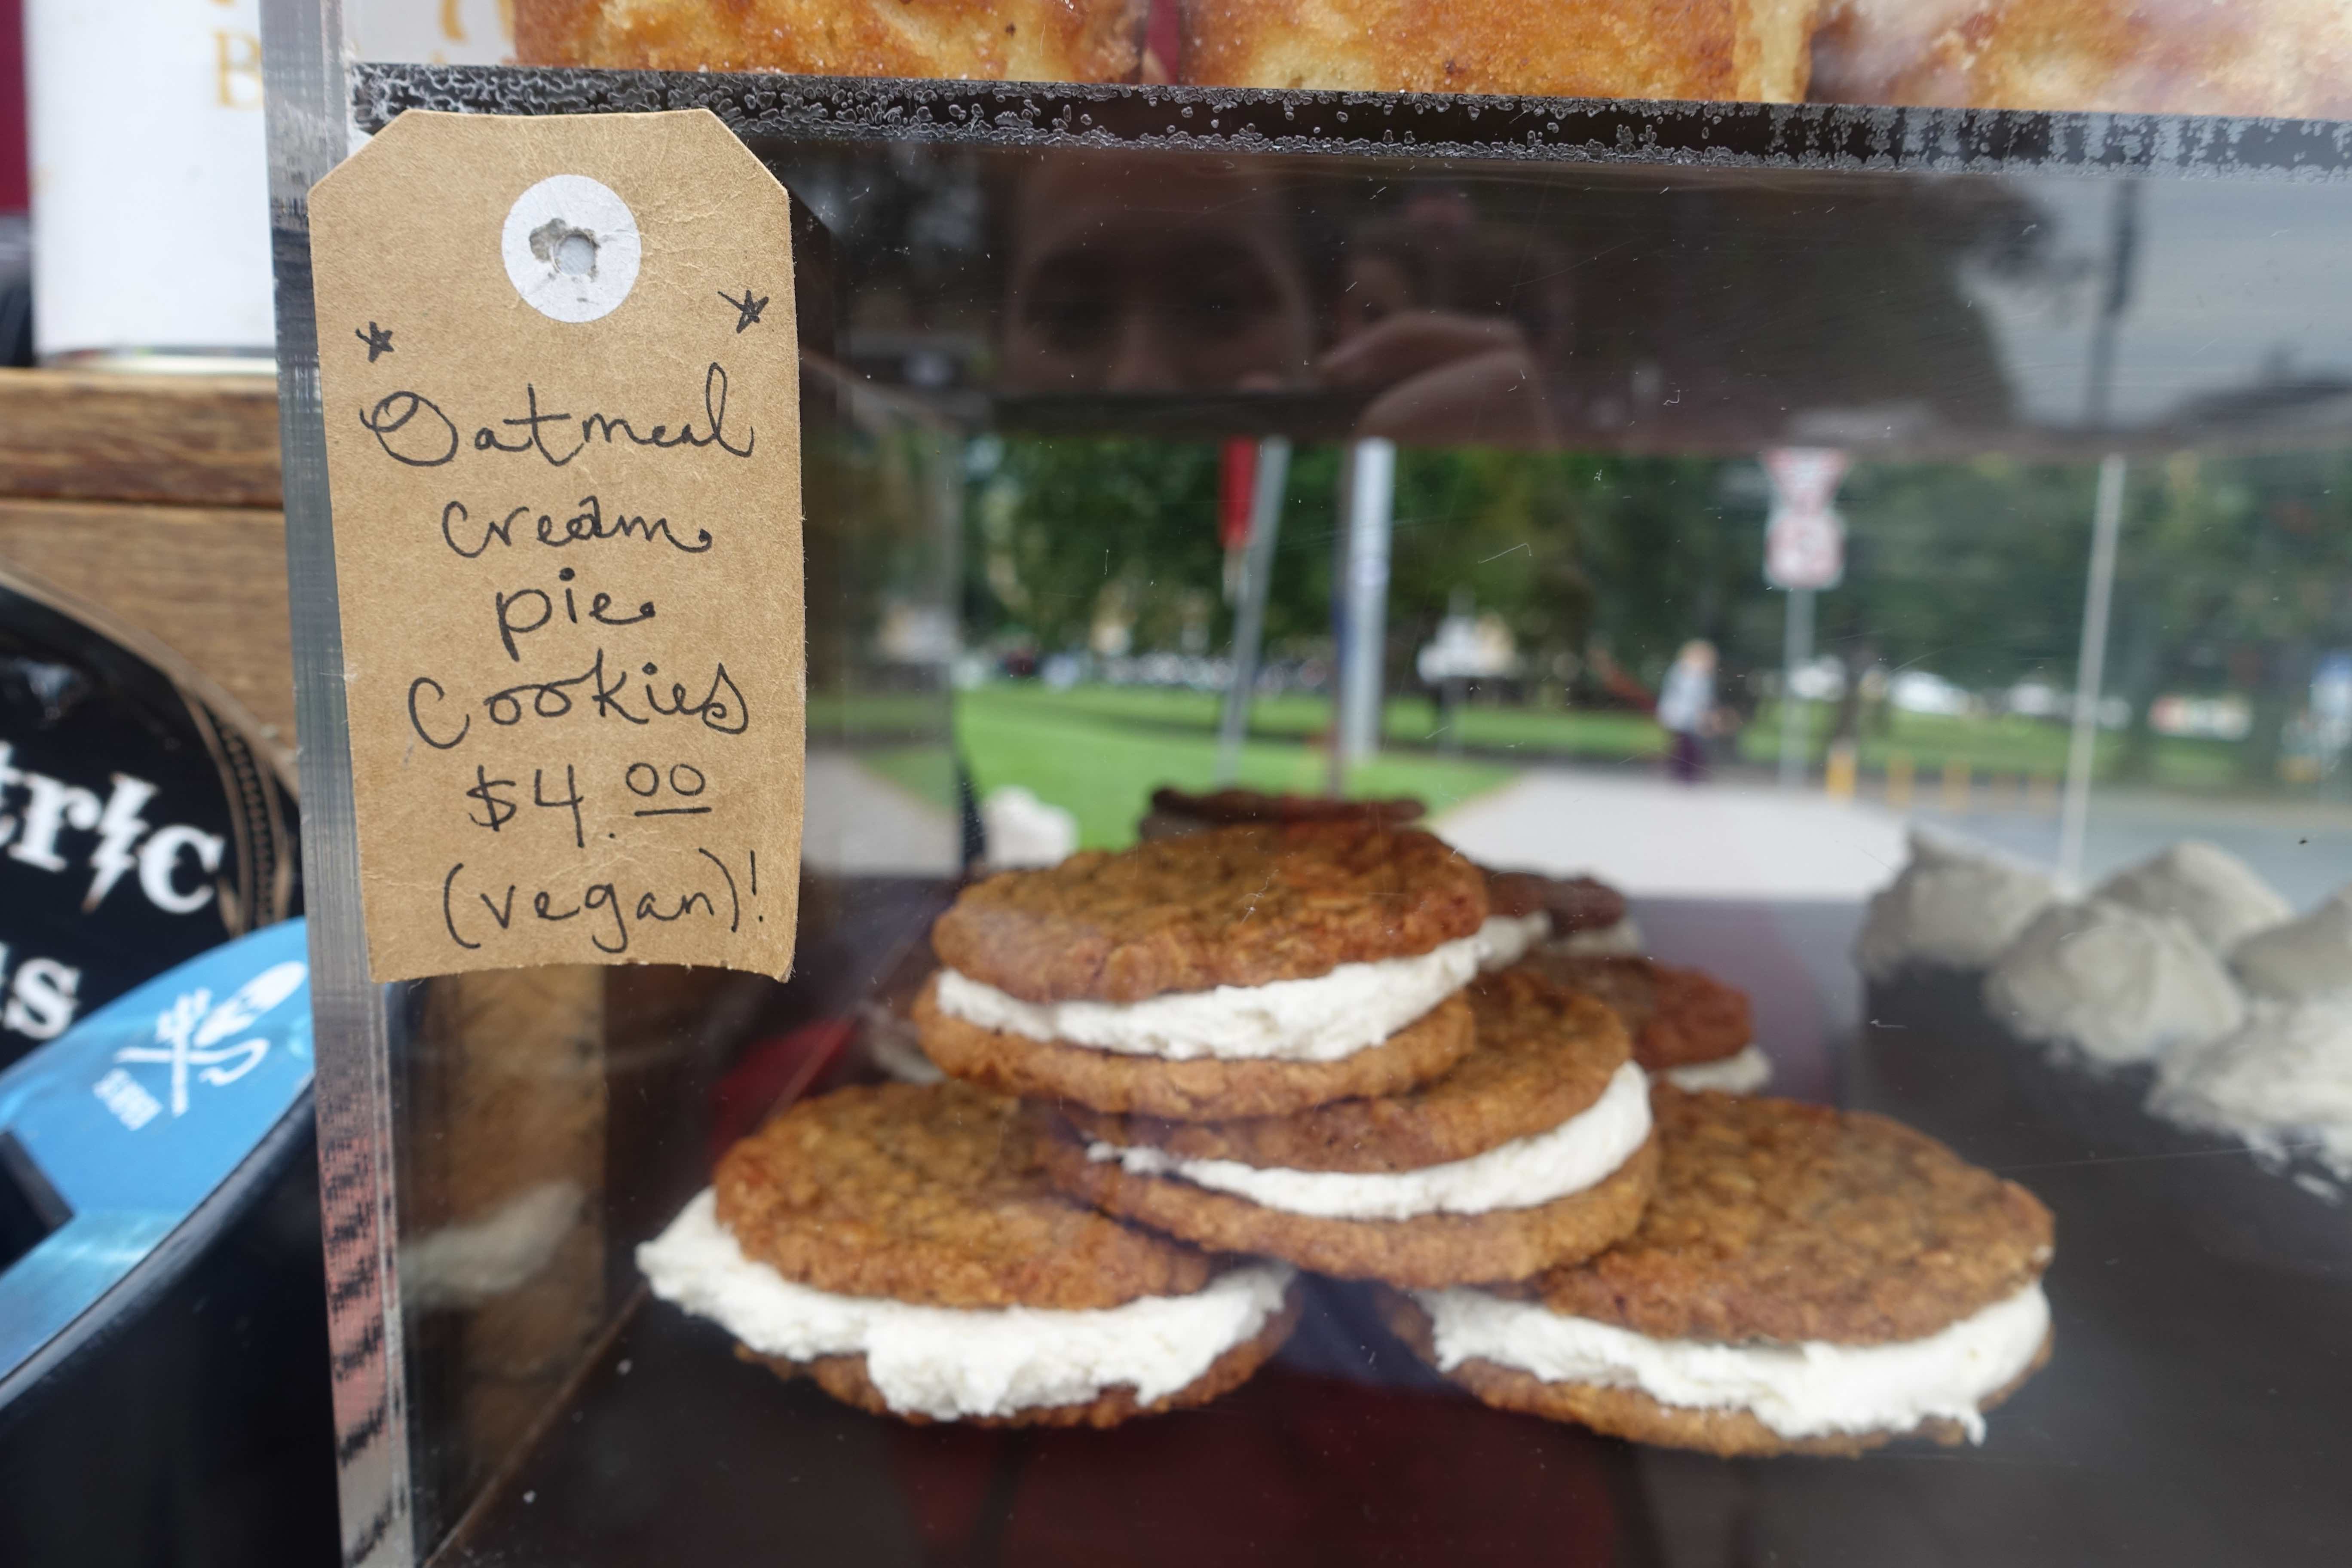 B
Oatmeal
cream
pie
Cookies
$4.00
(vegan)!
tric
ts